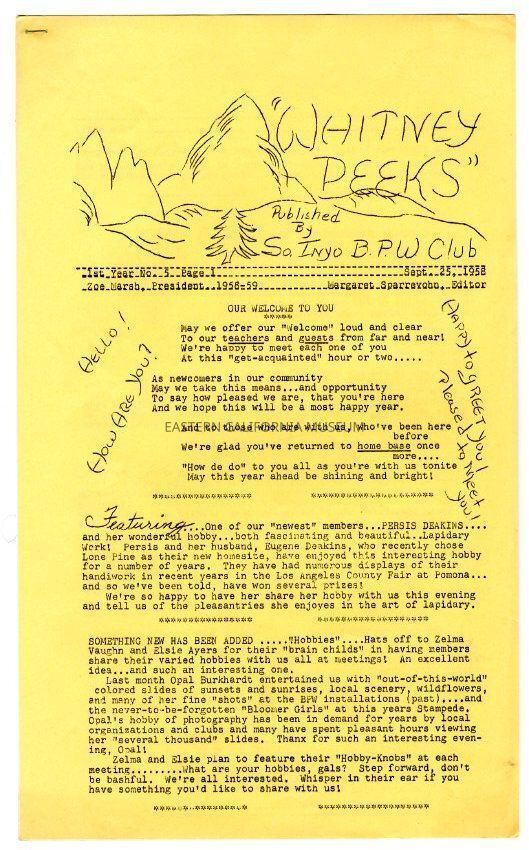 "WHITNEY
PEEKS"
Published
By
So. Inyo B.P.W Club
1st Year No. 5 Page 1 Sept. 25, 1958
Zoe Marsh, President 1958-59 Margaret Sparrevohn, Editor
OUR WELCOME TO YOU
*****
HELLO!
HOW ARE YOU?
HAPPY to GREET YOU!
Pleased to Meet
You!
May we offer our "Welcome" loud and clear
To our teachers and guests from far and near!
We're happy to meet each one of you
At this "get-acquainted" hour or two.....
As newcomers in our community
May we take this means...and opportunity
To say how pleased we are, that you're here
And we hope this will be a most happy year.
And to those who are with us, who've been here
before
EASTERN CALIFORNIA MUSEUM
We're glad you've returned to home base once
more....
"How de do" to you all as you're with us tonite
May this year ahead be shining and bright!
Featuring...One of our "newest" members...PERSIS DEAKINS....
and her wonderful hobby...both fascinating and beautiful..Lapidary
Work! Persis and her husband, Eugene Deakins, who recently chose
Lone Pine as their new homesite, have enjoyed this interesting hobby
for a number of years. They have had numerous displays of their
handiwork in recent years in the Los Angeles County Fair at Pomona...
and so we've been told, have won several prizes!
We're so happy to have her share her hobby with us this evening
and tell us of the pleasantries she enjoyes in the art of lapidary.
SOMETHING NEW HAS BEEN ADDED ....."Hobbies"....Hats off to Zelma
Vaughn and Elsie Ayers for their "brain childs" in having members
share their varied hobbies with us all at meetings! An excellent
idea...and such an interesting one.
Last month Opal Burkhardt entertained us with "out-of-this-world"
colored slides of sunsets and sunrises, local scenery, wildflowers,
and many of her fine "shots" at the BPW installations (past)....and
the never-to-be-forgotten "Bloomer Girls" at this years Stampede.
Opal's hobby of photography has been in demand for years by local
organizations and clubs and many have spent pleasant hours viewing
her "several thousand" slides. Thanx for such an interesting even-
ing, Opal!
Zelma and Elsie plan to feature their "Hobby-Knobs" at each
meeting.........What are your hobbies, gals? Step forward, don't
be bashful. We're all interested. Whisper in their ear if you
have something you'd like to share with us!